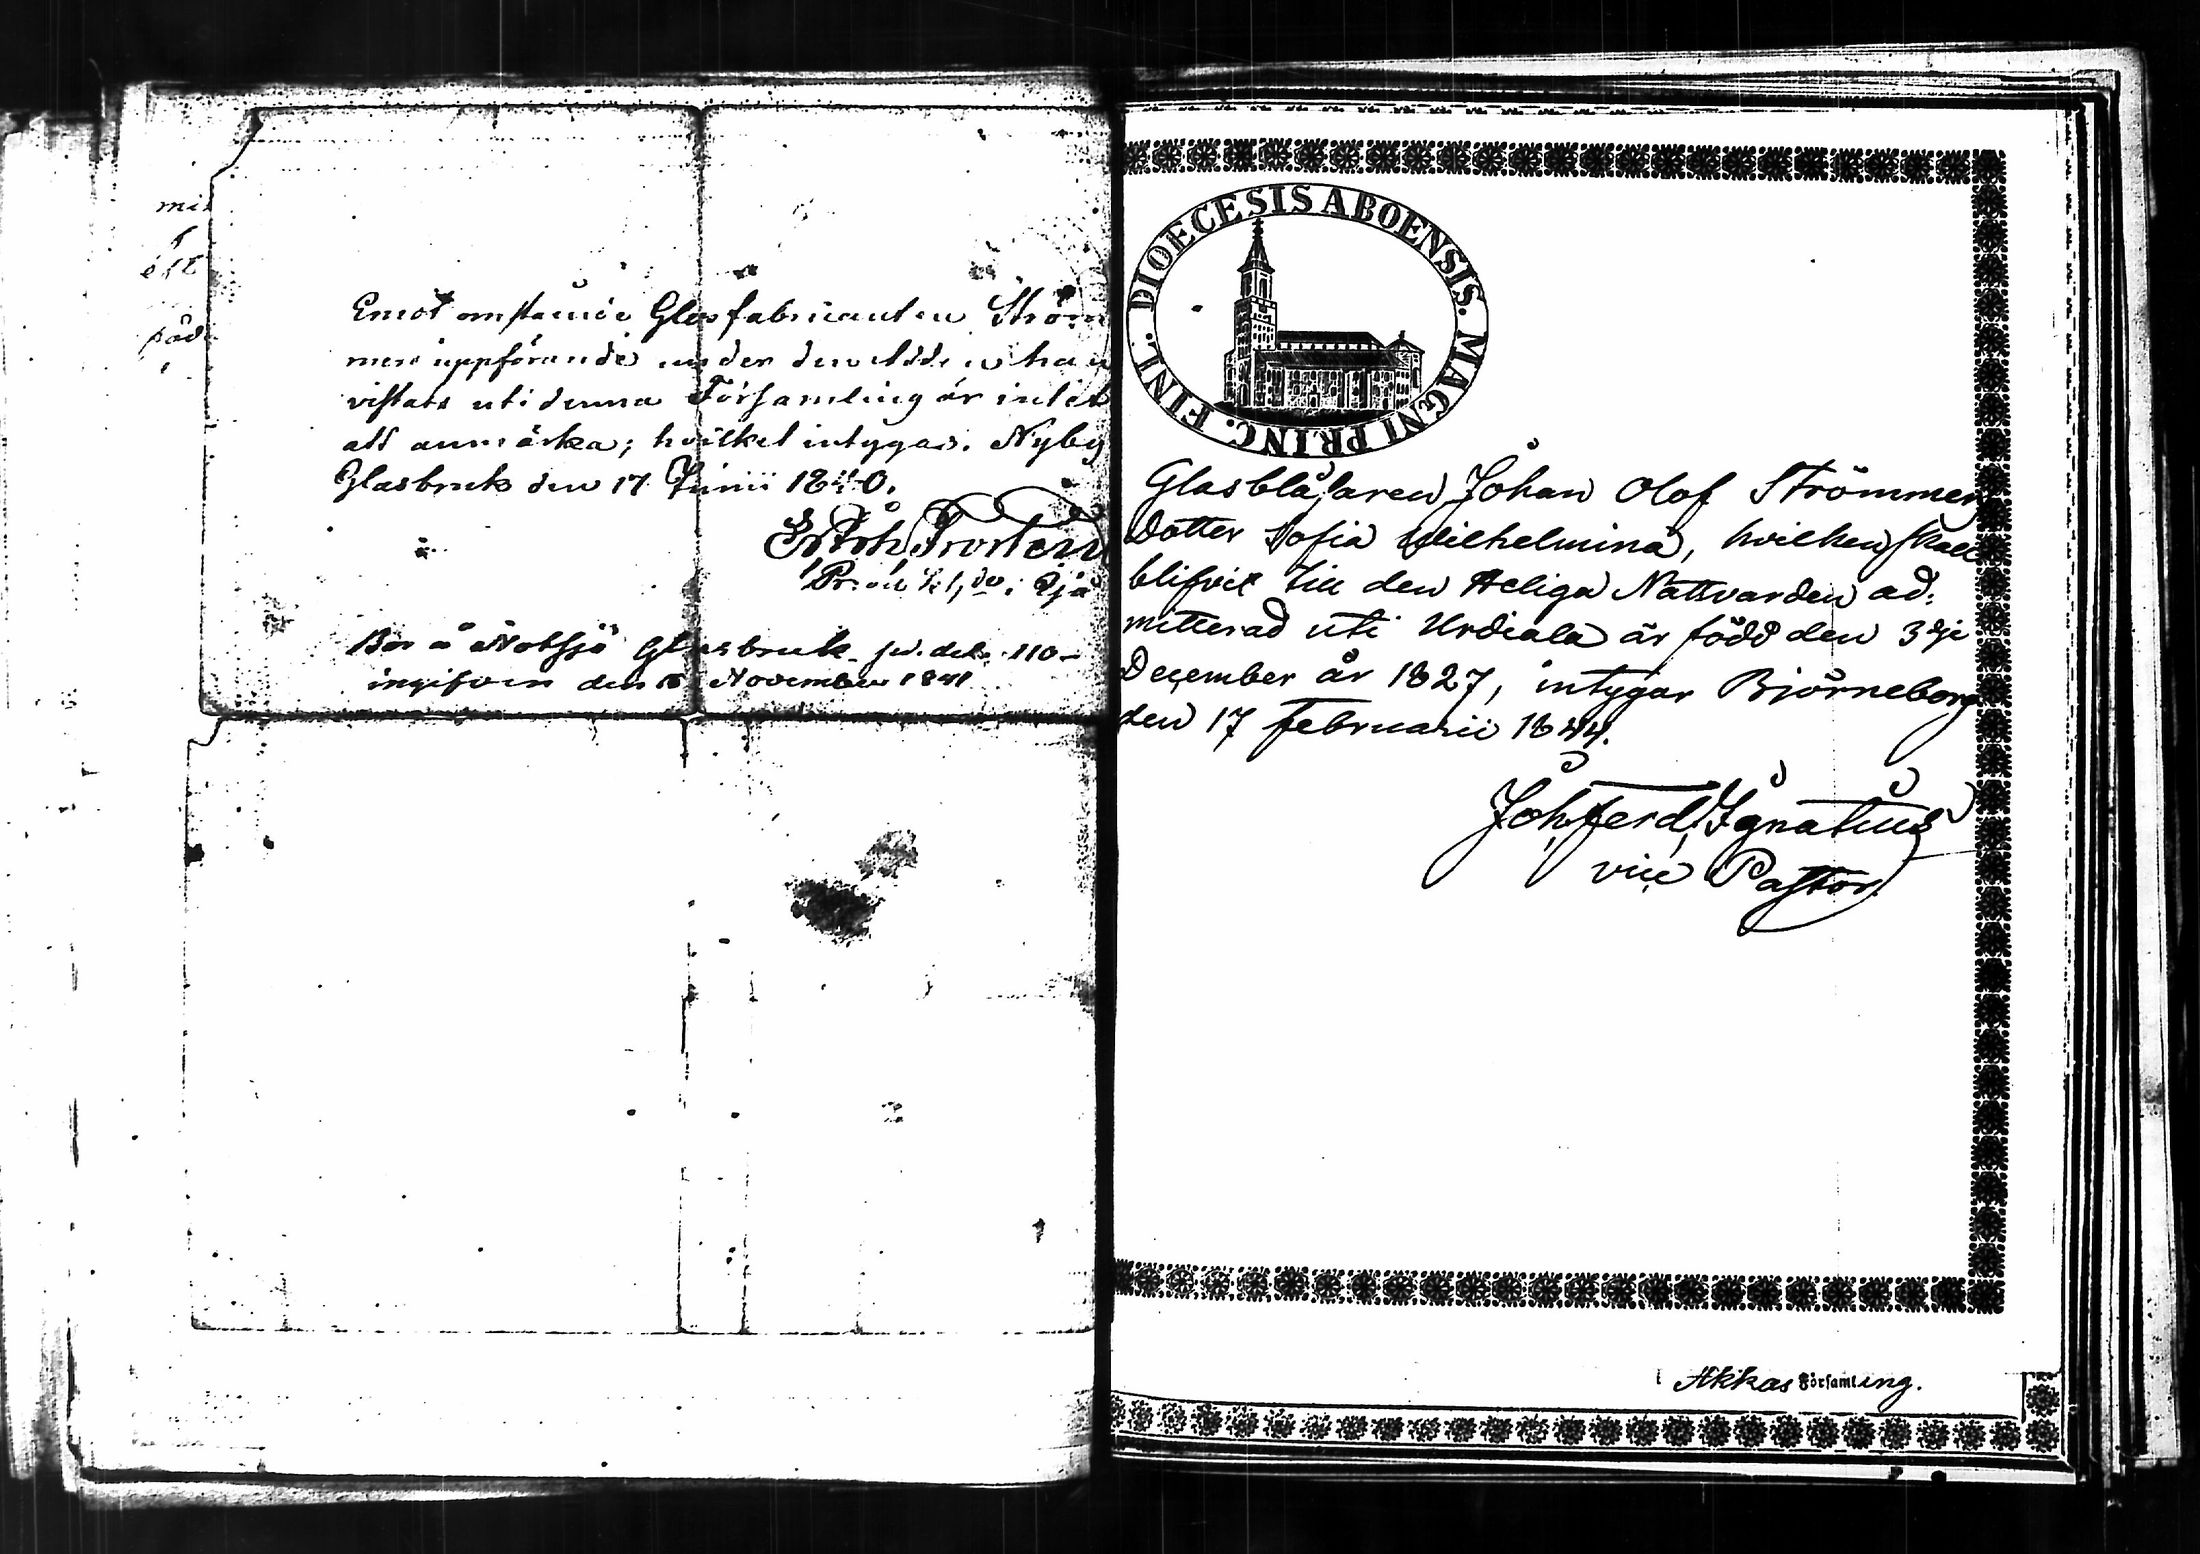 mis
est
född
Emot omstående Glasfabricanten Ström
mers uppförande under den tiden han
vistats uti denna Församling är intet
att anmärka; hvilket intygas. Nyby
Glasbruk den 17 Junii 1840.
Bor å Notsjö Glasbruk. pd. del. 110
ingifven den 8 November 1841
DIOECESIS ABOENSIS. MAGNI PRINC. FINL.
Glasblåsaren Johan Olof Strömmers
dotter Sofia Wilhelmina, hvilken skall
blifvit till den Heliga Nattvarden ad:
mitterad uti Urdiala är född den 3dje
December år 1827, intygar Björneborg
den 17 Februarii 1844.
Joh. Ferd. Ignatius
vice Pastor.
Akkas Församling.